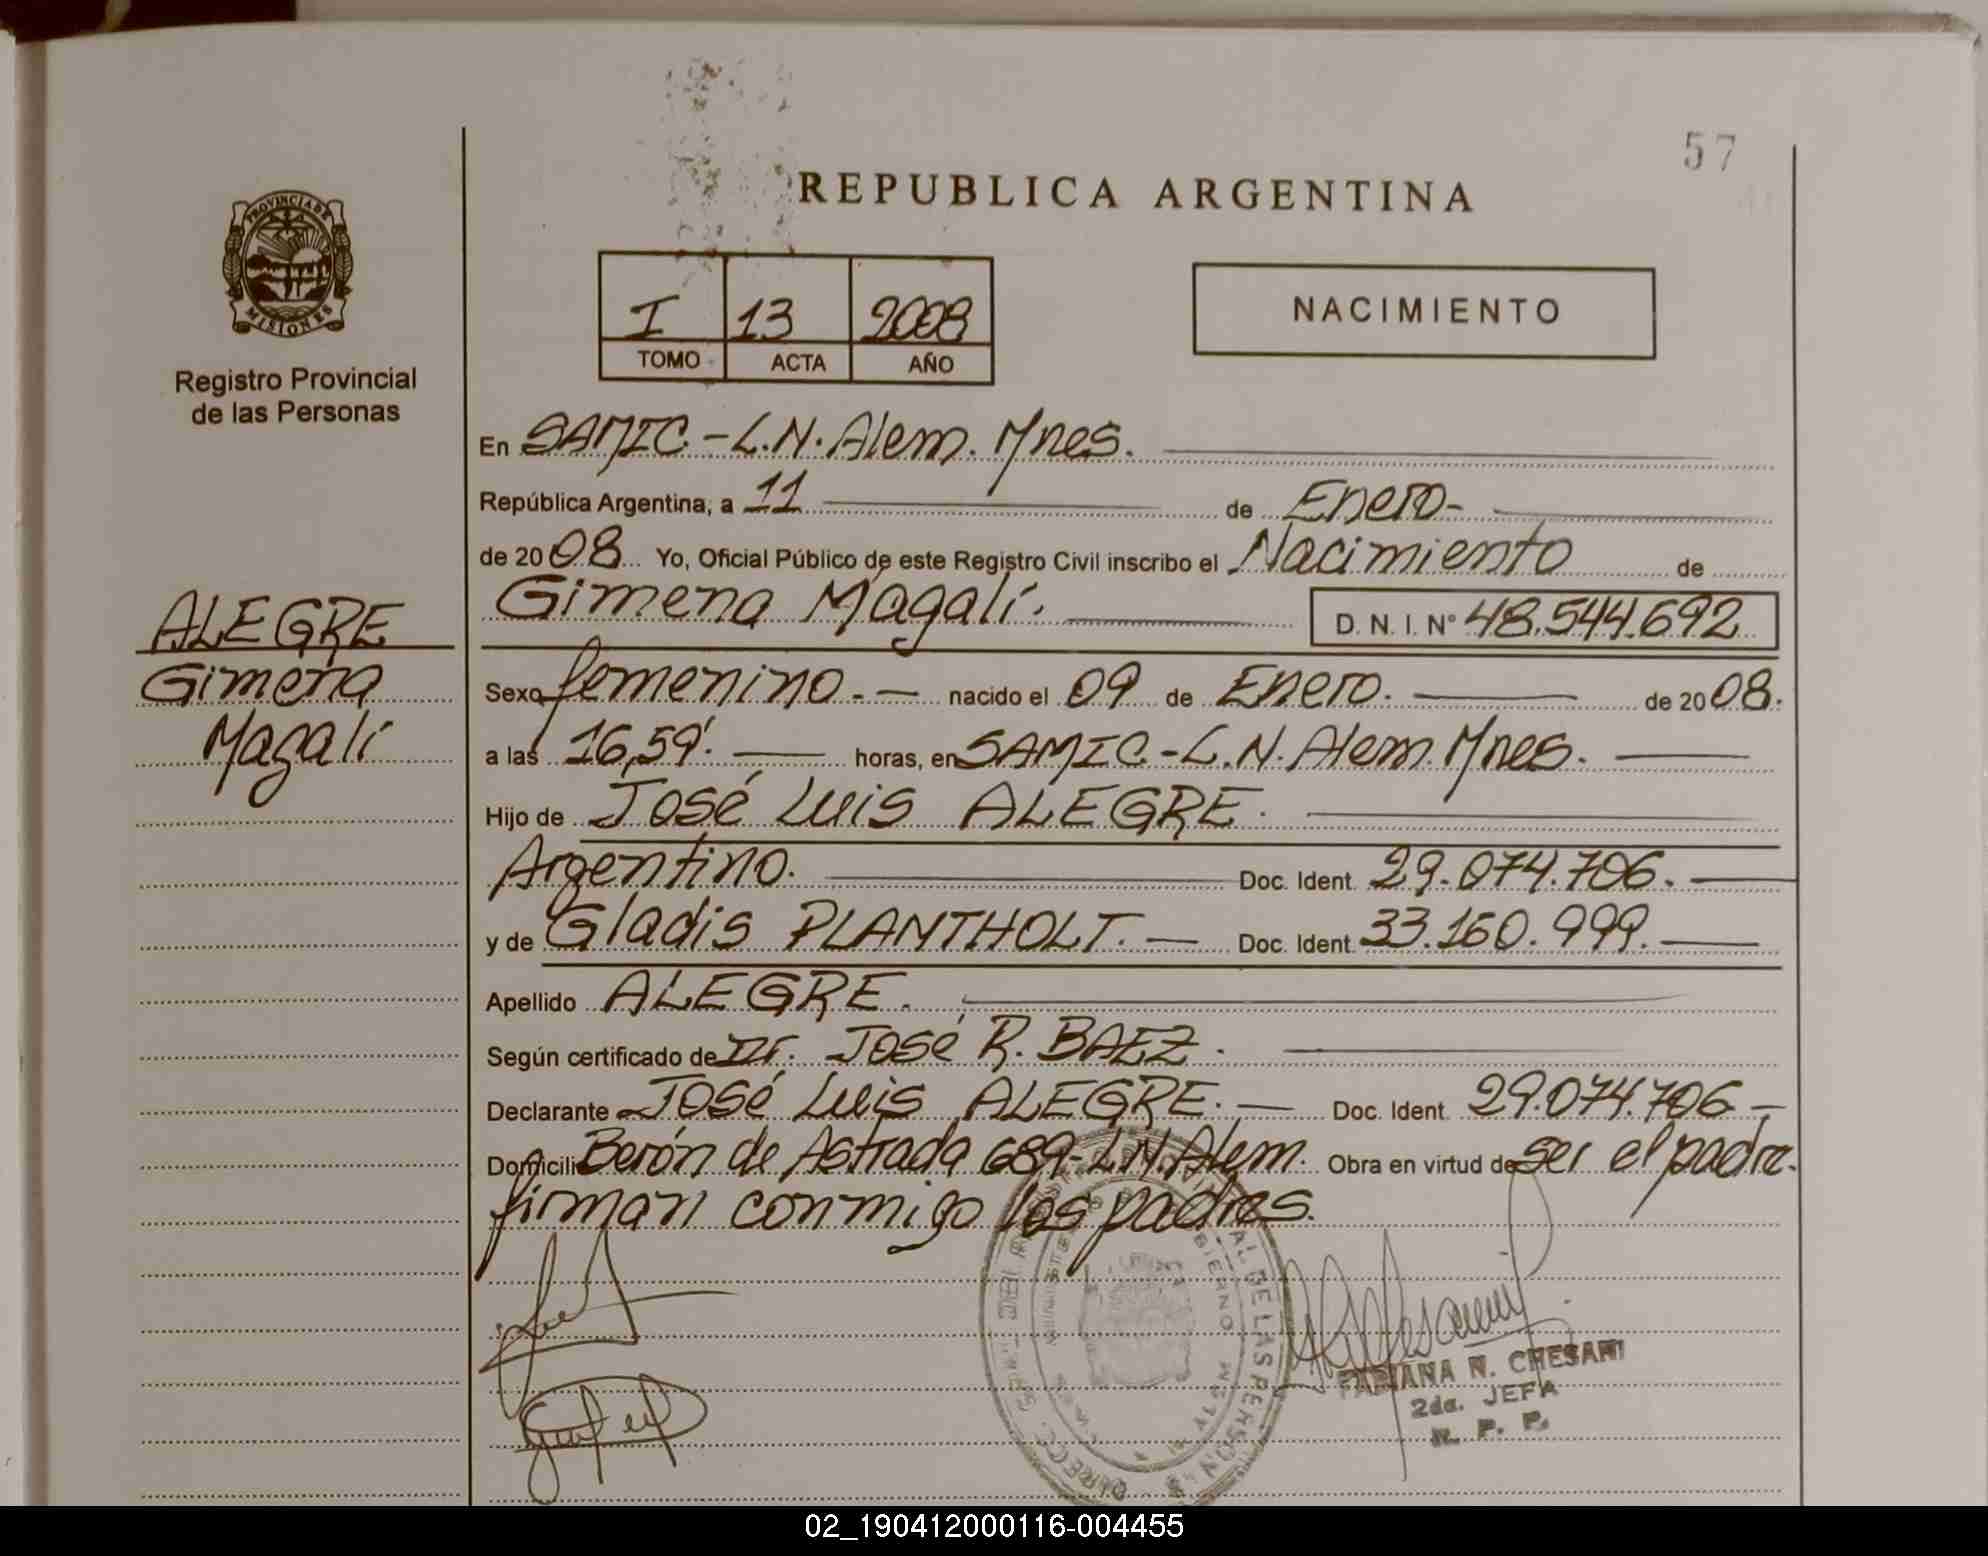 57
REPUBLICA ARGENTINA
PROVINCIA DE
MISIONES
Registro Provincial
de las Personas
I 13 2008
TOMO ACTA AÑO
NACIMIENTO
En SAMIC.-L.N. Alem. Mnes.
República Argentina, a 11 de Enero-
de 2008 Yo, Oficial Público de este Registro Civil inscribo el Nacimiento de
Gimena Magalí. D. N. I. N° 48.544.692
ALEGRE
Gimena
Magalí
Sexo femenino.- nacido el 09 de Enero. de 2008.
a las 16,59'. horas, en SAMIC-L.N. Alem. Mnes.
Hijo de José Luis ALEGRE.
Argentino. Doc. Ident. 29.074.706.
y de Gladis PLANTHOLT. Doc. Ident. 33.160.999.
Apellido ALEGRE.
Según certificado de Dr. José R. BAEZ.
Declarante José Luis ALEGRE. Doc. Ident. 29.074.706
Domicilio Berón de Astrada 689-L.N. Alem. Obra en virtud de ser el padre.
firman conmigo los padres.
FABIANA N. CHESANI
2da. JEFA
R. P. P.
02_190412000116-004455